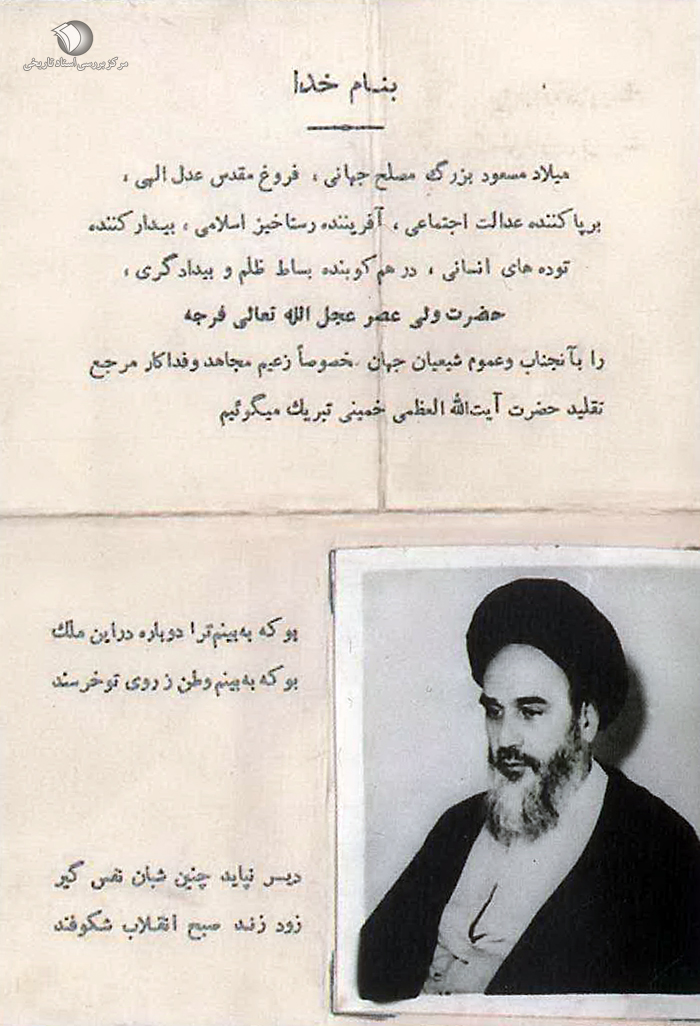 مرکز بررسی اسناد تاریخی
بنام خدا
میلاد مسعود بزرگ مصلح جهانی ، فروغ مقدس عدل الهی ،
برپاکننده عدالت اجتماعی ، آفریننده رستاخیز اسلامی ، بیدارکننده
توده های انسانی ، درهم کوبنده بساط ظلم و بیدادگری ،
حضرت ولی عصر عجل الله تعالی فرجه
را بآنجناب وعموم شیعیان جهان ،خصوصاً زعیم مجاهد وفداکار مرجع
تقلید حضرت آیت‌الله العظمی خمینی تبریك میگوئیم
بو که به‌بینم‌ترا دوباره دراین ملك
بو که به‌بینم وطن ز روی توخرسند
دیر نپاید چنین شبان نفس گیر
زود زند صبح انقلاب شکوفند